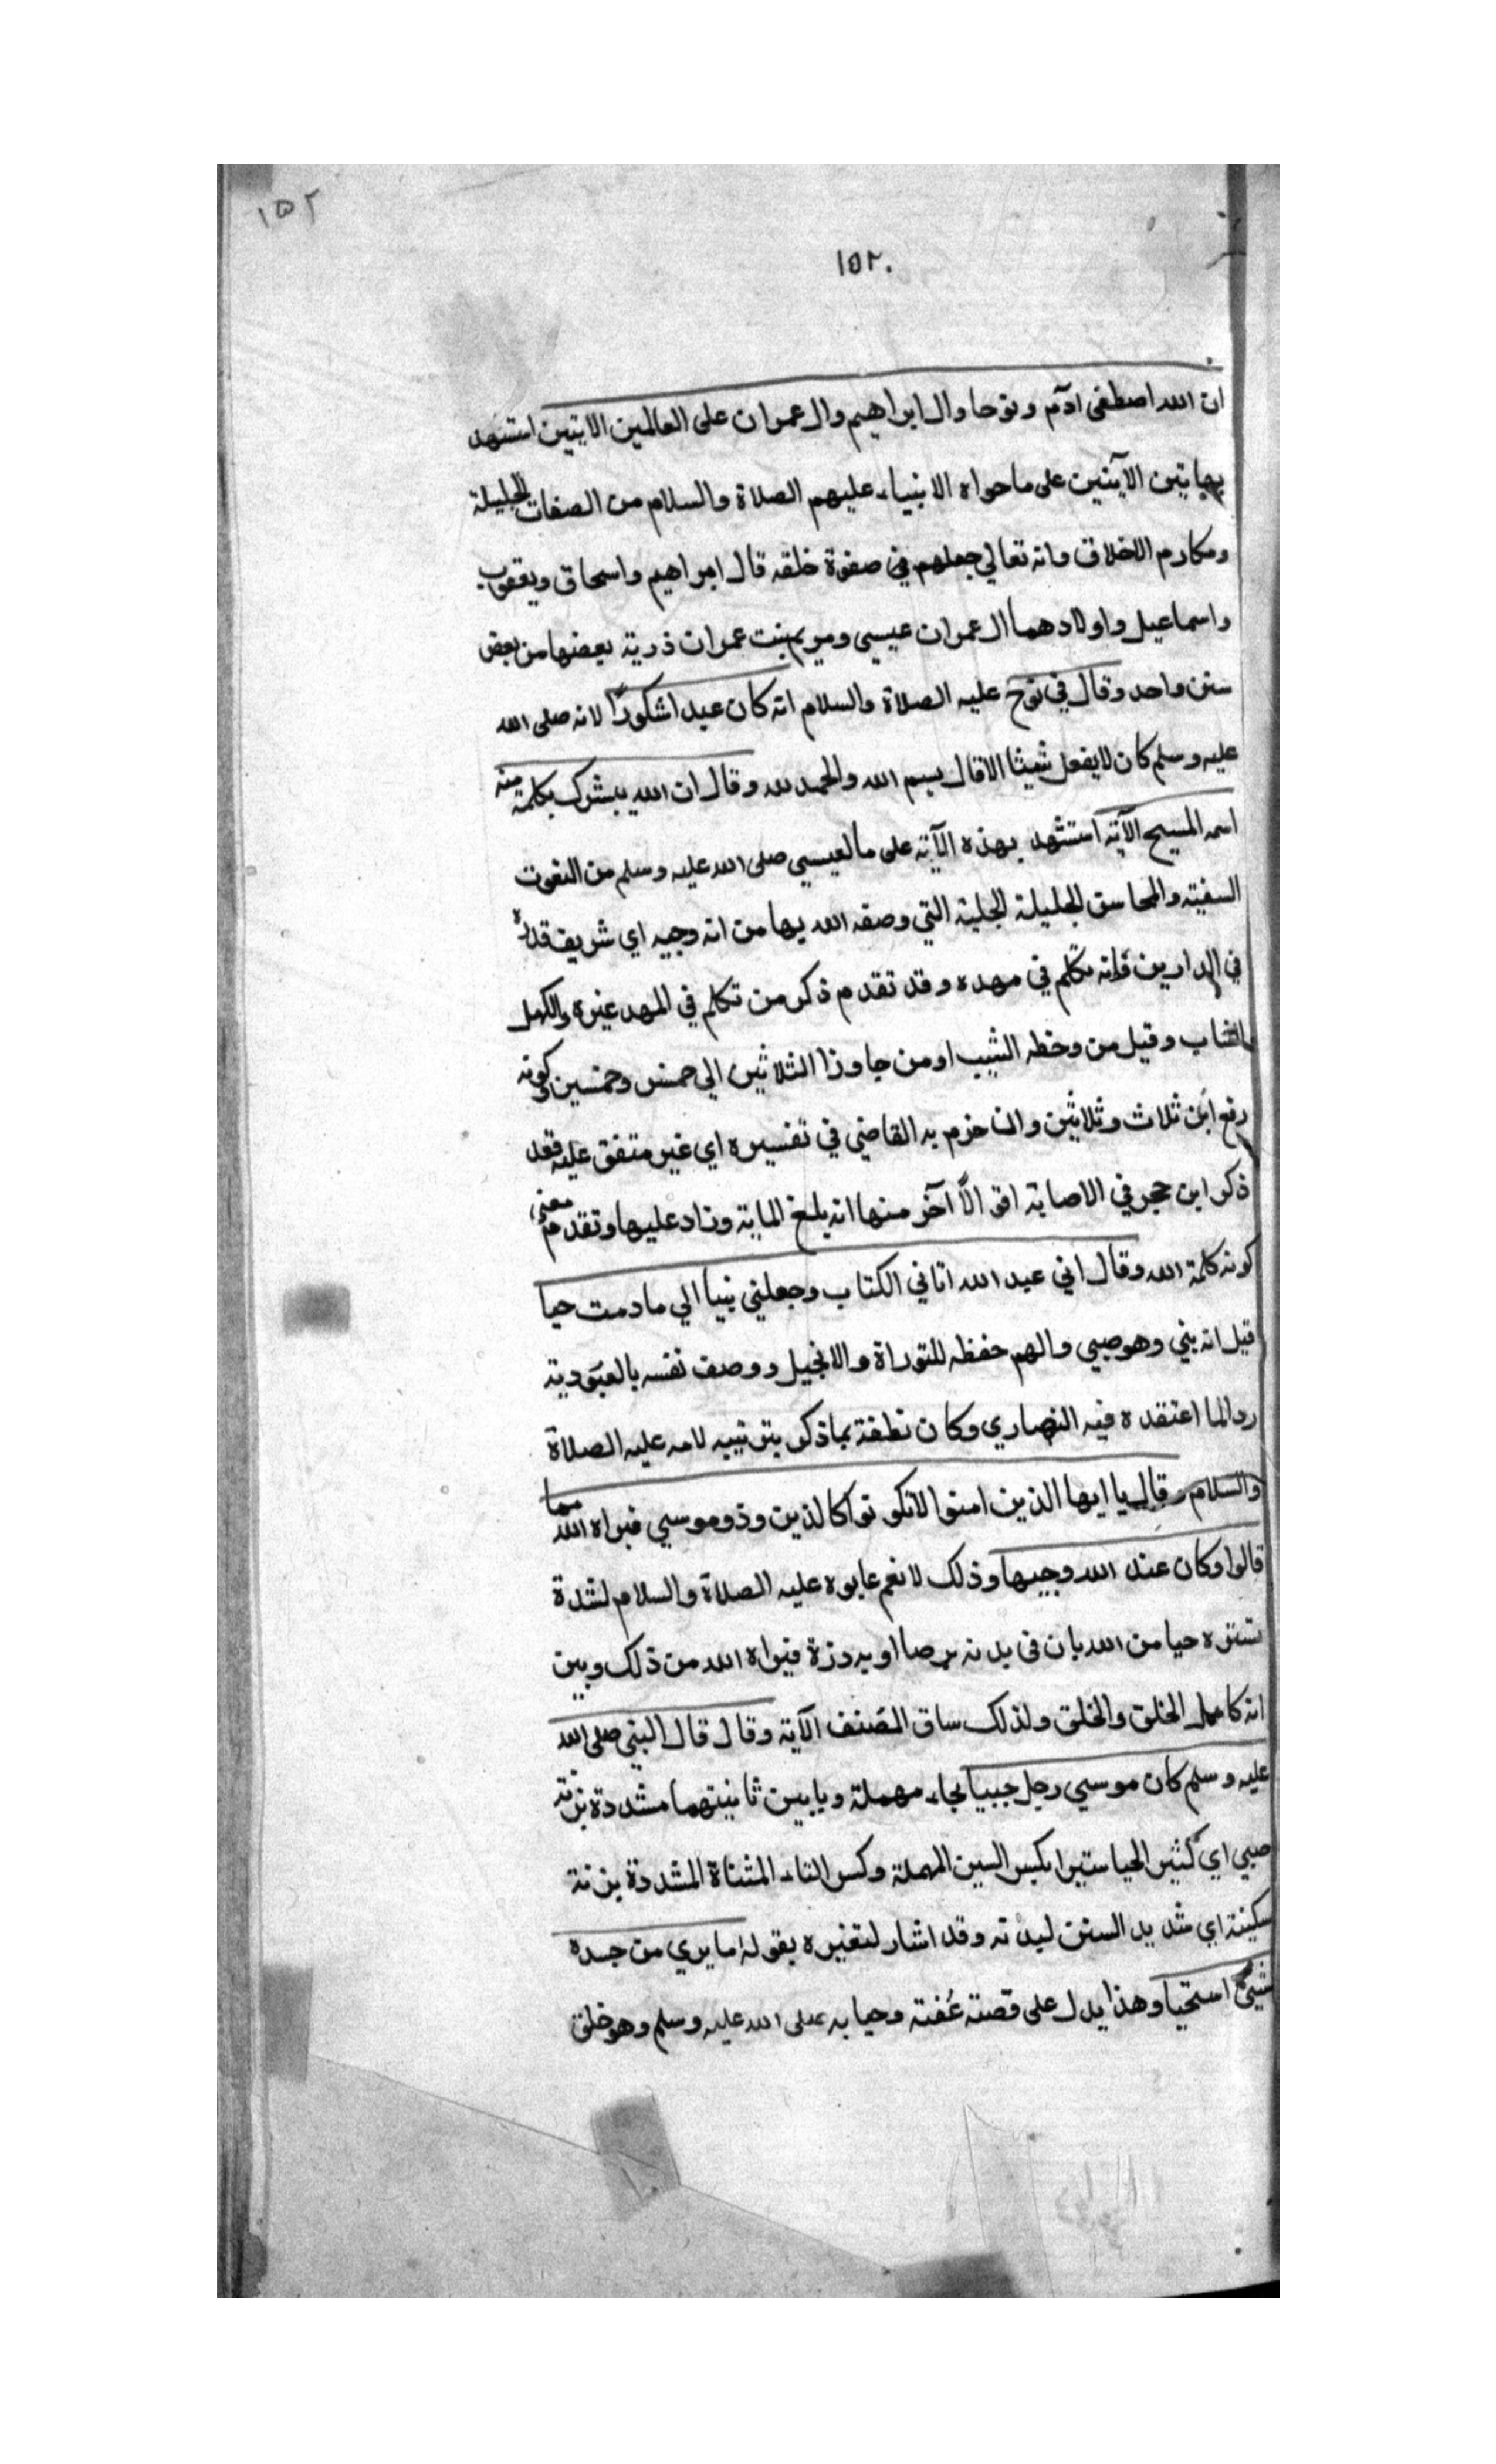 ١٥٢
١٥٢.
ان الله اصطفى ادم ونوحا وال ابراهيم وال عمران على العالمين الايتين استشهد
بهاتين الآيتين على ما حواه الانبياء عليهم الصلاة والسلام من الصفات الجليلة
ومكارم الاخلاق وانه تعالي جعلهم في صفوة خلقه قال ابراهيم واسحاق ويعقوب
واسماعيل واولادهما ال عمران عيسي ومريم بنت عمران ذرية بعضها من بعض
سنن واحد وقال في نوح عليه الصلاة والسلام انه كان عبدا شكورًا لانه صلى الله
عليه وسلم كان لا يفعل شيئا الا قال بسم الله والحمد لله وقال ان الله يبشرك بكلمة منه
اسمه المسيح الآية استشهد بهذه الآية على ما لعيسي صلى الله عليه وسلم من النعوت
السنية والمحاسن الجليلة الجلية التي وصفه الله بها من انه وجيه اي شريف قدره
في الدارين فانه تكلم في مهده وقد تقدم ذكر من تكلم في المهد غيره والكهل
الشاب وقيل من وخطه الشيب او من جاوزا الثلاثين الي خمس وخمسين وكونه
رفع ابن ثلاث وثلاثين وان جزم به القاضي في تفسيره اي غير متفق عليه فقد
ذكر ابن حجر في الاصابة اقوالاً آخر منها انه بلغ الماية وزاد عليها وتقدم معنى
كونه كلمة الله وقال اني عبد الله اتاني الكتاب وجعلني نبيا الي ما دمت حيا
قيل انه نبي وهو صبي والهم حفظه للتوراة والانجيل ووصف نفسه بالعبودية
ردا لما اعتقده فيه النصاري وكان نطقه بما ذكر بتربيبه لامه عليه الصلاة
والسلام وقال يا ايها الذين امنوا لا تكونوا كالذين وذو موسي فبراه الله مما
قالوا وكان عند الله وجيها وذلك لانهم عابوه عليه الصلاة والسلام لشدة
تستره حيا من الله بان في بدنه برصا او به درة فبراه الله من ذلك وبين
انه كامل الخلق والخلق ولذلك ساق المصنف الآية وقال قال النبي صلى الله
عليه وسلم كان موسي رجل حييا بحاء مهملة ويابين ثانيتهما مشددة بزنة
صبي اي كثير الحيا ستيرا بكسر السين المهملة وكسر التاء المثناة المشددة بزنة
سكينة اي شديد الستر لبدنه وقد اشار لتفسيره بقوله ما يري من جسده
شيئ استحيا وهذا يدل على قصته عُفته وحيايه صلى الله عليه وسلم وهو خلق